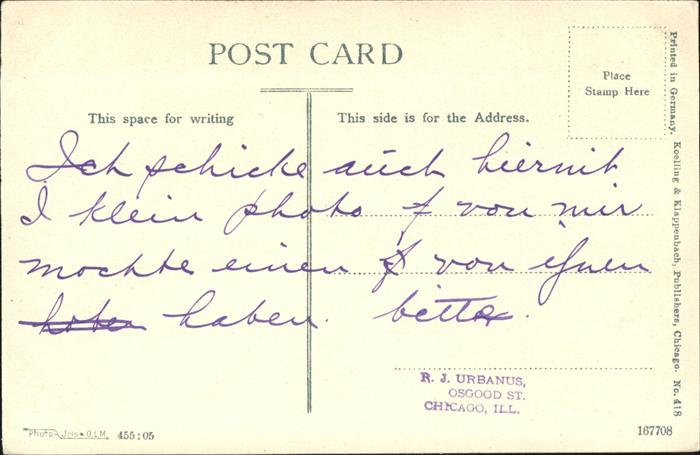 POST CARD
Place
Stamp Here
This space for writing
This side is for the Address.
Ich schicke auch hiermit
I klein photo f von mir
mochte einen f von ihnen
haben. bitte.
R. J. URBANUS,
OSGOOD ST.
CHICAGO, ILL.
Photo-Iris-O.I.M. 455:05
167708
Printed in Germany. Koelling & Klappenbach, Publishers, Chicago. No. 418